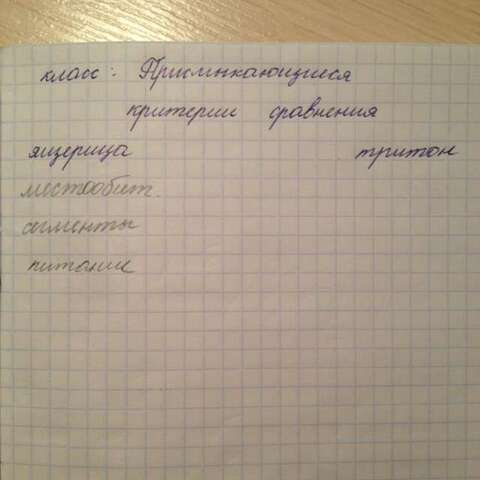 класс: Присмыкающиеся
критерии сравнения
ящерица тритон
местообит.
сегменты
питание